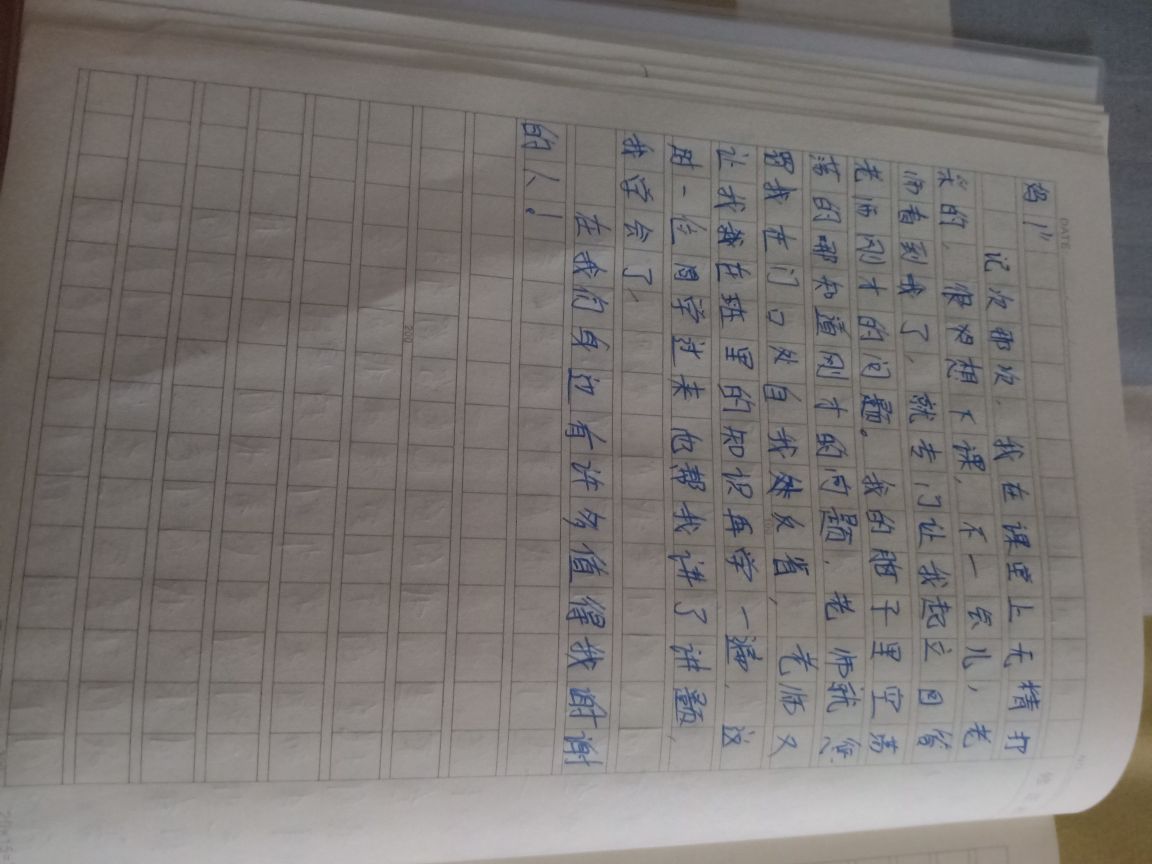 妈！”
记次那次，我在课堂上无精打
采的，很想想下课，不一会儿，老
师看到我了，就考门让我起立回答
老师刚才的问题。我的脑子里空荡
荡的哪知道刚才的问题，老师就
罚我在门口处自我反省，老师又
让我在班里的知识再学一遍，这
时一位同学过来也帮我讲了讲题，
我学会了，
在我们身边有许多值得我谢谢
的人！
DATE
200